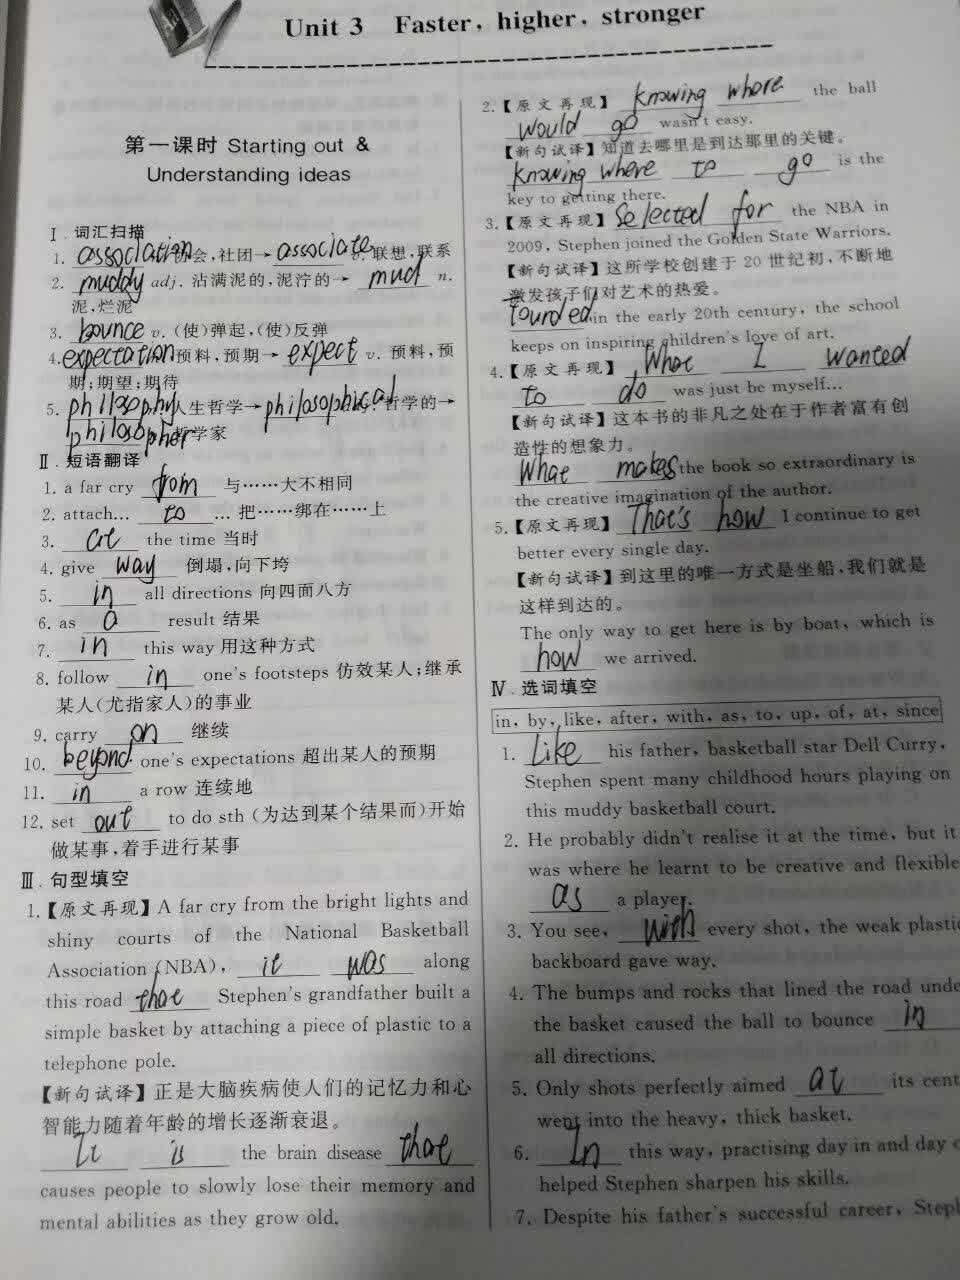 Unit 3 Faster, higher, stronger
第一课时 Starting out &
Understanding ideas
Ⅰ. 词汇扫描
1. association 会,社团→ associate v. 联想,联系
2. muddy adj. 沾满泥的,泥泞的→ mud n.
泥,烂泥
3. bounce v. (使)弹起,(使)反弹
4. expectation 预料,预期→ expect v. 预料,预
期;期望;期待
5. philosophy 人生哲学→ philosophical adj. 哲学的→
philosopher 哲学家
Ⅱ. 短语翻译
1. a far cry from 与……大不相同
2. attach... to ... 把……绑在……上
3. at the time 当时
4. give way 倒塌,向下垮
5. in all directions 向四面八方
6. as a result 结果
7. in this way 用这种方式
8. follow in one's footsteps 仿效某人;继承
某人(尤指家人)的事业
9. carry on 继续
10. beyond one's expectations 超出某人的预期
11. in a row 连续地
12. set out to do sth (为达到某个结果而)开始
做某事,着手进行某事
Ⅲ. 句型填空
1.【原文再现】A far cry from the bright lights and
shiny courts of the National Basketball
Association (NBA), it was along
this road that Stephen's grandfather built a
simple basket by attaching a piece of plastic to a
telephone pole.
【新句试译】正是大脑疾病使人们的记忆力和心
智能力随着年龄的增长逐渐衰退。
It is the brain disease that
causes people to slowly lose their memory and
mental abilities as they grow old.
2.【原文再现】 knowing where the ball
would go wasn't easy.
【新句试译】知道去哪里是到达那里的关键。
knowing where to go is the
key to getting there.
3.【原文再现】 Selected for the NBA in
2009, Stephen joined the Golden State Warriors.
【新句试译】这所学校创建于 20 世纪初,不断地
激发孩子们对艺术的热爱。
founded in the early 20th century, the school
keeps on inspiring children's love of art.
4.【原文再现】 What I wanted
to do was just be myself...
【新句试译】这本书的非凡之处在于作者富有创
造性的想象力。
What makes the book so extraordinary is
the creative imagination of the author.
5.【原文再现】 That's how I continue to get
better every single day.
【新句试译】到这里的唯一方式是坐船,我们就是
这样到达的。
The only way to get here is by boat, which is
how we arrived.
Ⅳ. 选词填空
in, by, like, after, with, as, to, up, of, at, since
1. Like his father, basketball star Dell Curry,
Stephen spent many childhood hours playing on
this muddy basketball court.
2. He probably didn't realise it at the time, but it
was where he learnt to be creative and flexible
as a player.
3. You see, with every shot, the weak plastic
backboard gave way.
4. The bumps and rocks that lined the road unde
the basket caused the ball to bounce in
all directions.
5. Only shots perfectly aimed at its cent
went into the heavy, thick basket.
6. In this way, practising day in and day o
helped Stephen sharpen his skills.
7. Despite his father's successful career, Steph